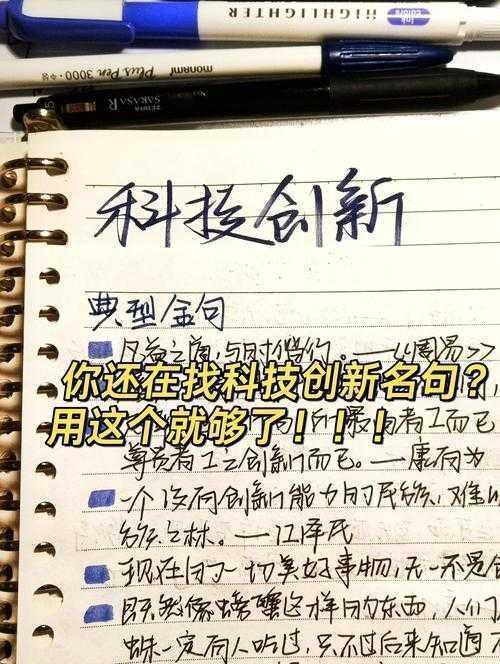 HiGHLiGHTER
Ink Colors
monami Plus Pen 3000
ZEBRA SARASA R
科技创新
典型金句
凡益之道,与时偕行。——《周易>>
你还在找科技创新名句?
用这个就够了!!!
最高者工而已
尊贵者工之创新而已。——康有为
一个没有创新能力的民族,难以
之林。——江泽民
现在的一切美好事物,无一不是创
既然像螃蟹这样的东西,人们
蛛一定有人吃过,只不过后来知道不